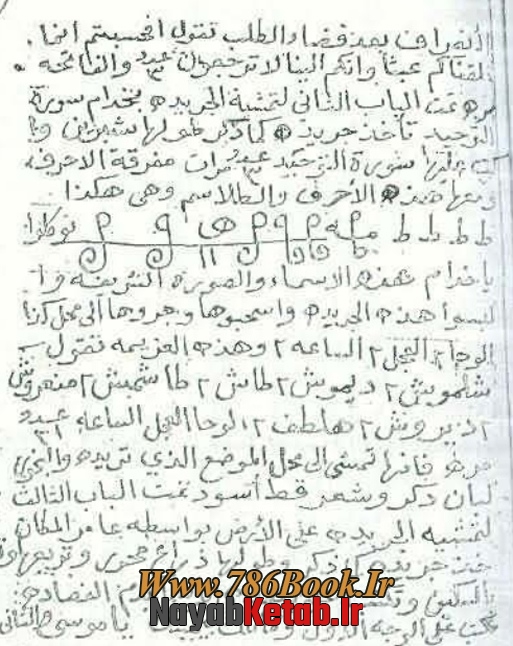 الانصراف بعد قضاء الطلب تقول افحسبتم انما
خلقناكم عبثا وانكم الينا لا ترجعون عدد ٣ والفاتحه
مره تمت الباب الثانى لتمشية الجريده بخدام سورة
التوحيد تأخذ جريده كما ذكر طولها شبرين
عليها سورة التوحيد عدد ٣ مرات مفرقة الاحرف
هذه الأحرف والطلاسم وهى هكذا
ط ط ط ط توكلوا
يا خدام هذه الاسماء والصورة الشريفه
هذه الجريده واسحبوها وجروها الى محل كذا
الوحا ٢ العجل ٢ الساعه ٢ وهذه العزيمه تقول
شلموش ٢ ديموش ٢ طاش ٢ طاشميش ٢
٢ ديروش ٢ هلطف ٢ الوحا العجل الساعه عدد
مره فانها تمشى الى محل الموضع الذي تريده والبخور
لبان ذكر وشعر قط أسود تمت الباب الثالث
لتمشيه الجريده على الأرض بواسطه عامر المكان
خذ جريده ذكر طولها ذراع
بالسكين
تكتب على الوجه الاول يا موسى الثانى
Www.786Book.Ir
NayabKetab.Ir